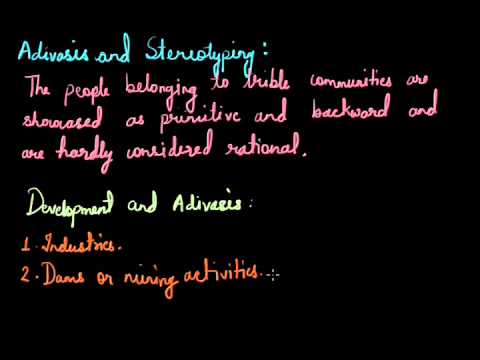 Adivasis and Stereotyping:
The people belonging to trible communities are
showcased as primitive and backward and
are hardly considered rational.
Development and Adivasis:
1. Industries.
2. Dams or mining activities.